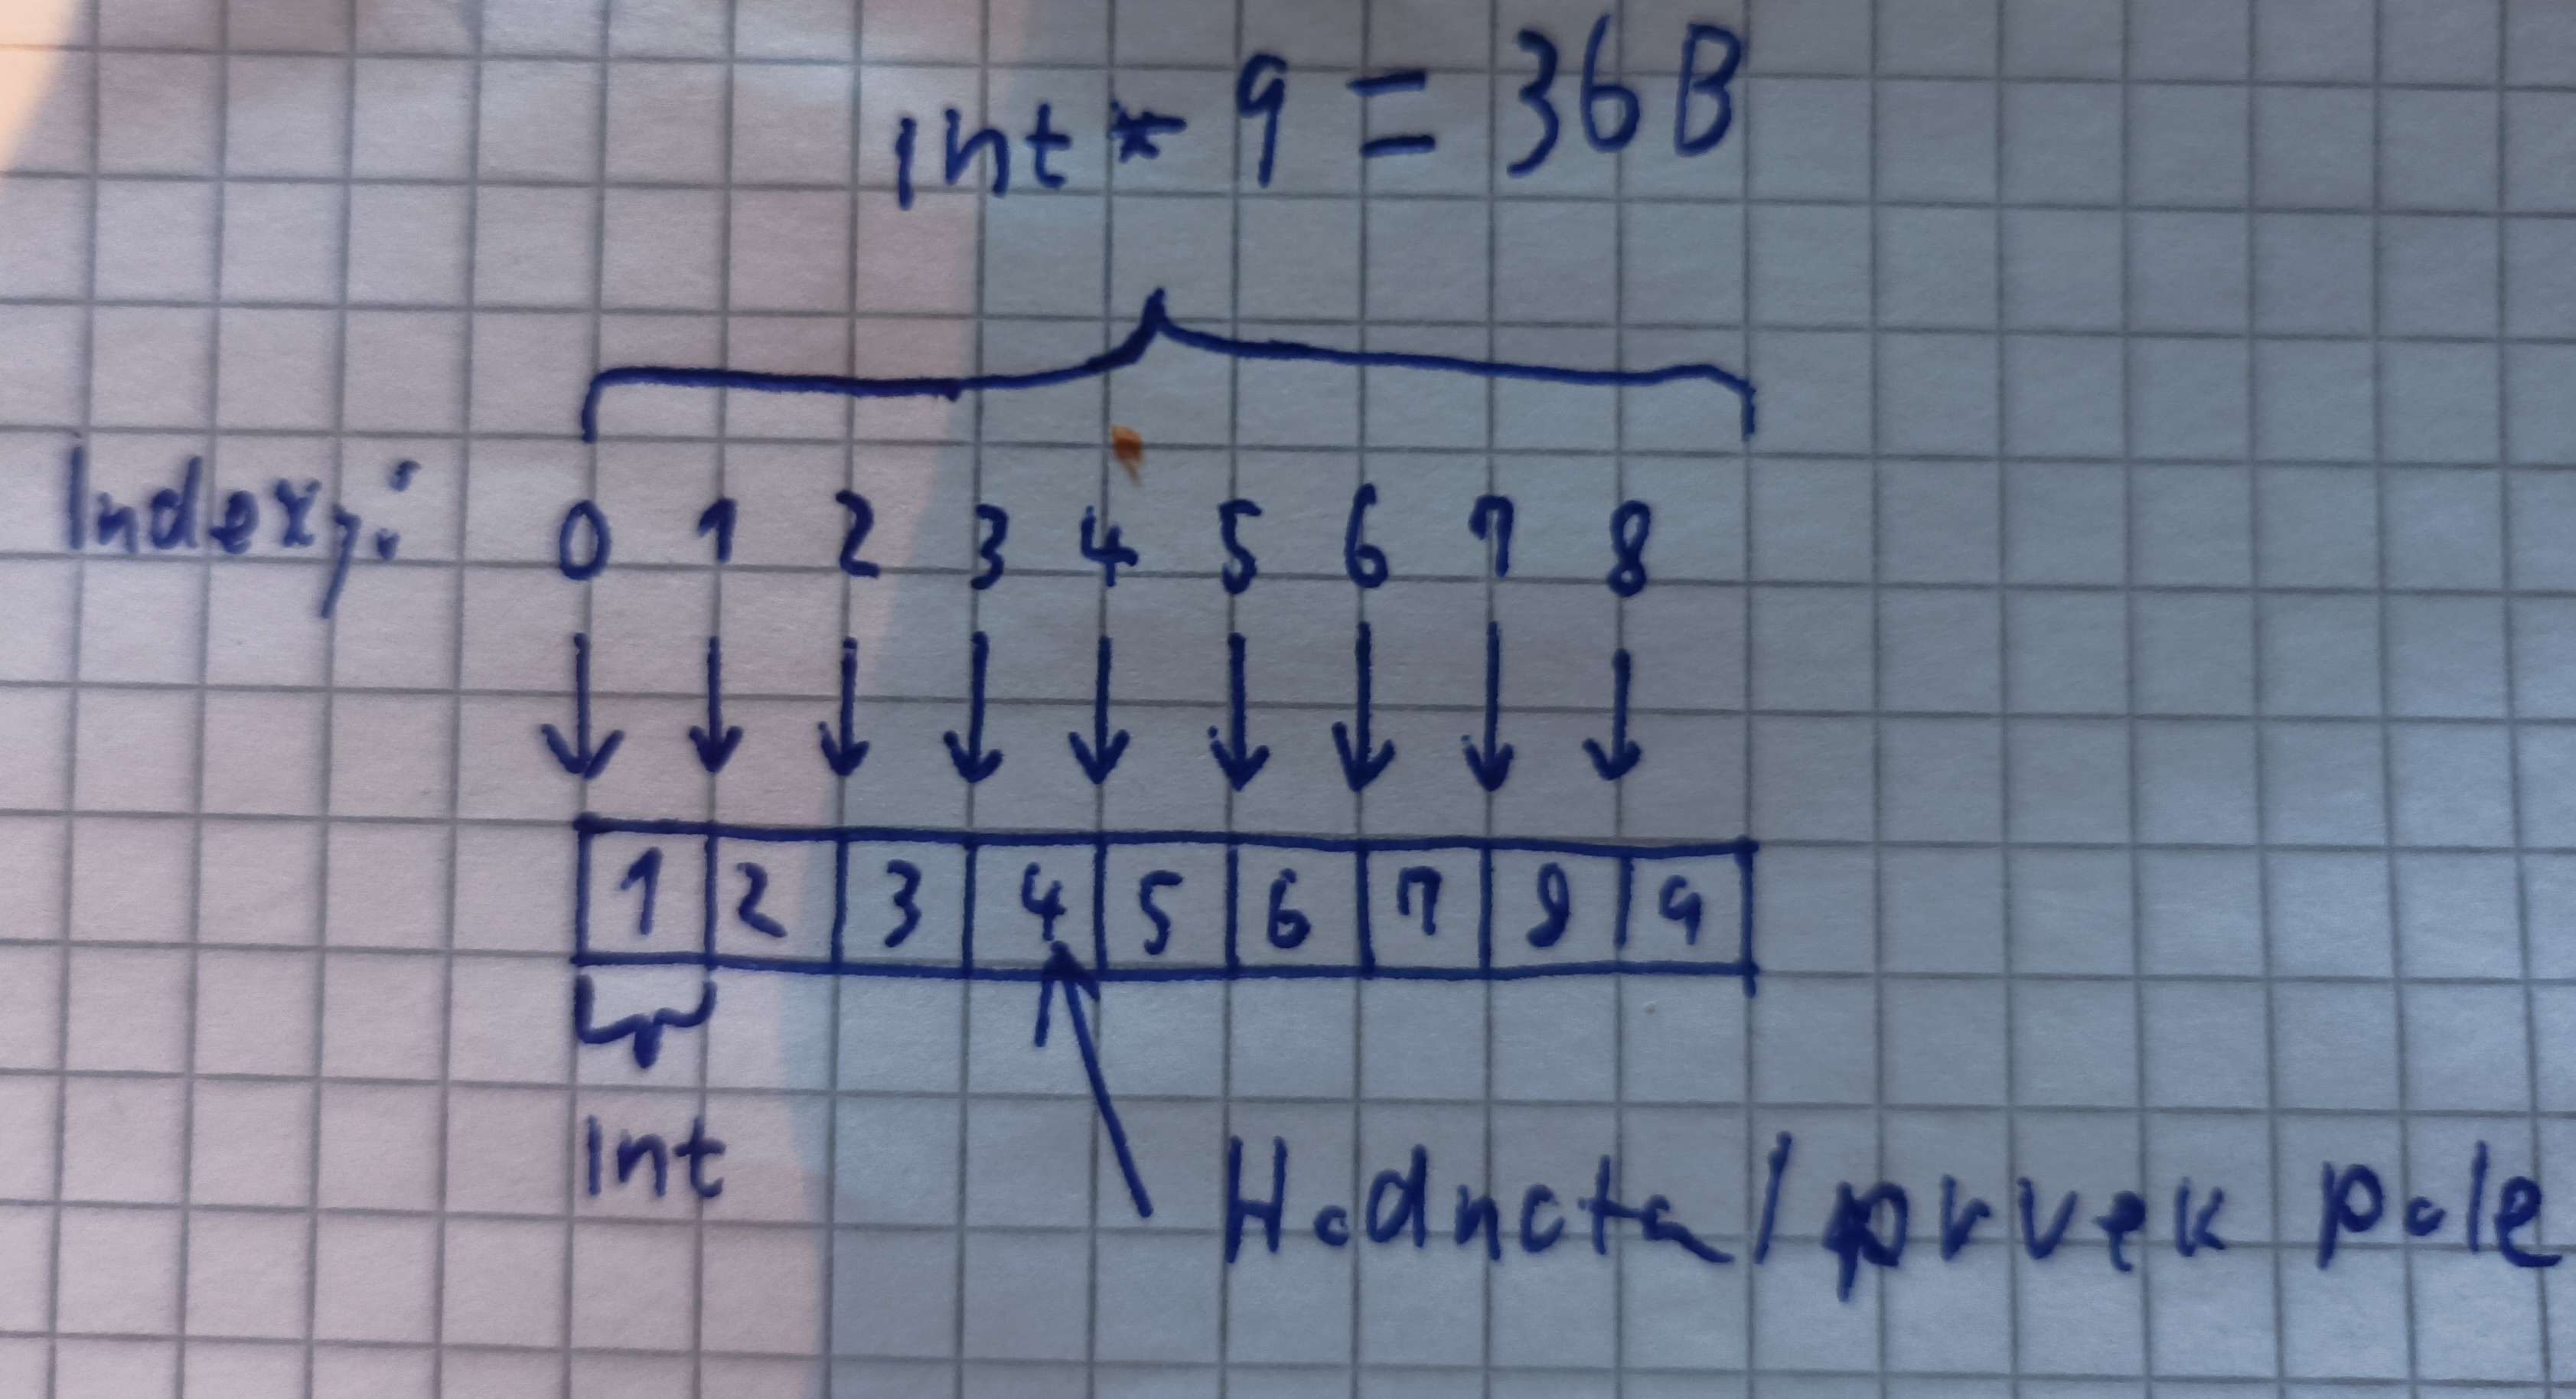 int * 9 = 36 B
Indexy: 0 1 2 3 4 5 6 7 8
1 2 3 4 5 6 7 8 9
int
Hodnota / prvek pole